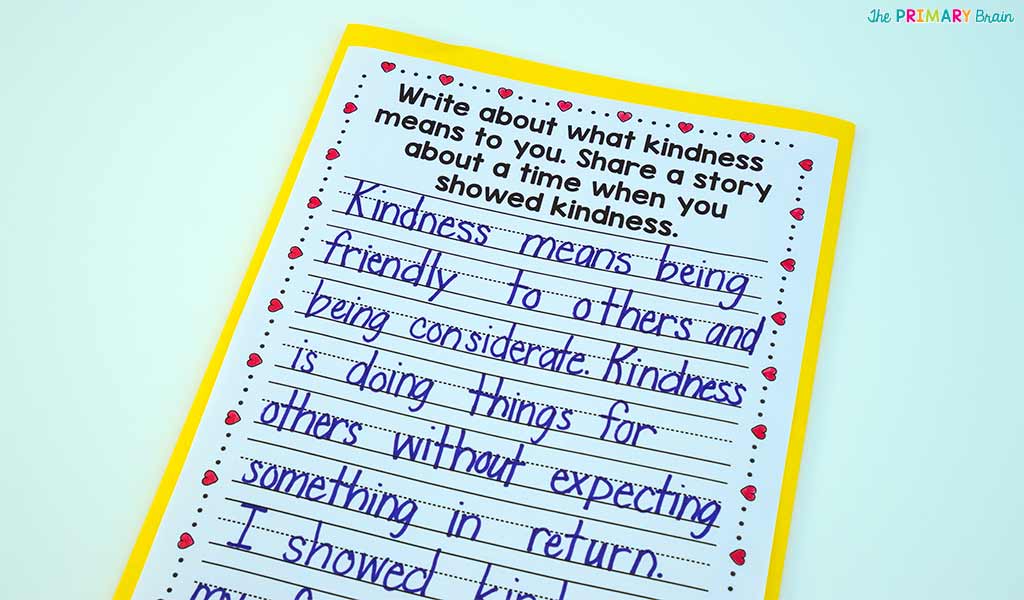 The PRIMARY Brain
Write about what kindness
means to you. Share a story
about a time when you
showed kindness.
Kindness means being
friendly to others and
being considerate. Kindness
is doing things for
others without expecting
something in return.
I showed
my